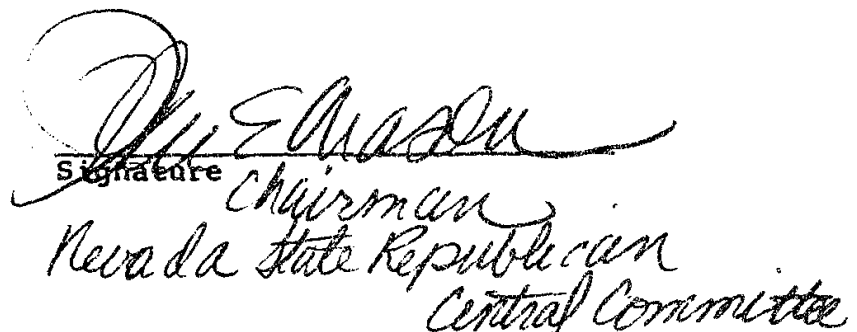 E
Signature
Chairman
Nevada State Republican
Central Committee